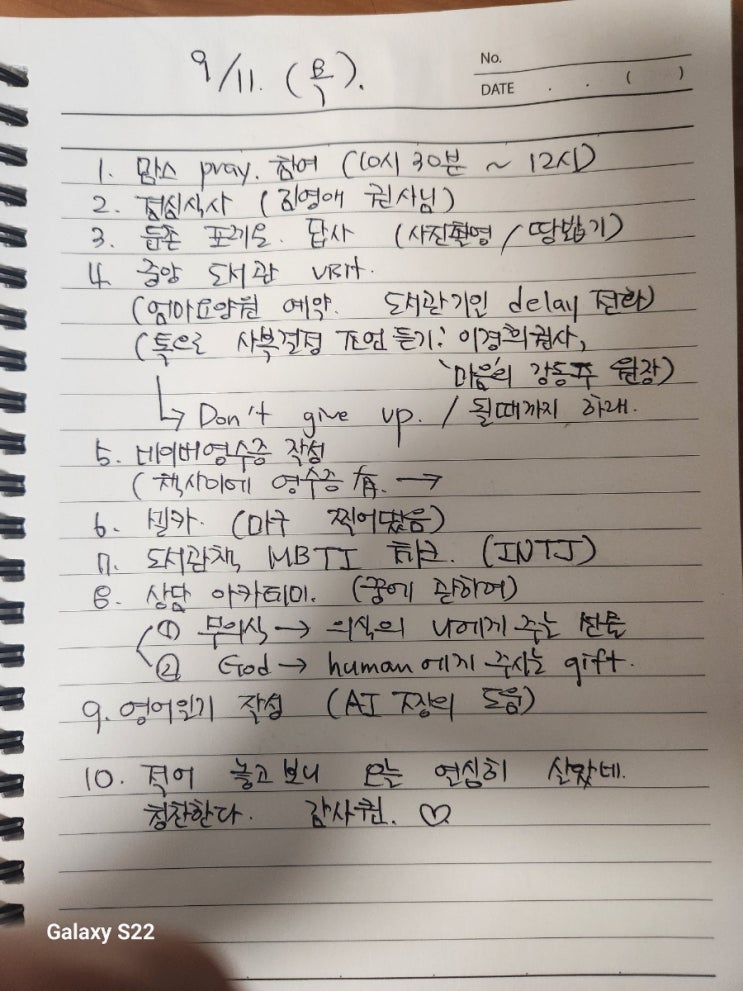 9/11. (목).
No.
DATE . . ( )
1. 맘스 pray. 참여 (10시 30분 ~ 12시)
2. 점심식사 (김영애 권사님)
3. 둔촌 포레온. 답사 (사진촬영 / 땅밟기)
4. 중앙 도서관 visit.
(엄마요양원 예약. 도서관기인 delay 전화)
(톡으로 사부결정 조언 듣기: 이경희권사,
'마음'의 강동주 원장)
↳ Don't give up. / 될때까지 하래.
5. 네이버영수증 작성
(책사이에 영수증 有. →
6. 셀카. (마구 찍어댔음)
7. 도서관책 MBTI 체크. (INTJ)
8. 상담 아카데미. (꿈에 관하여)
① 무의식 → 의식의 나에게 주는 선물
② God → human에게 주시는 gift.
9. 영어일기 작성 (AI 조장의 도움)
10. 적어 놓고보니 오늘 열심히 살았네.
칭찬한다. 감사퀸. ♡
Galaxy S22